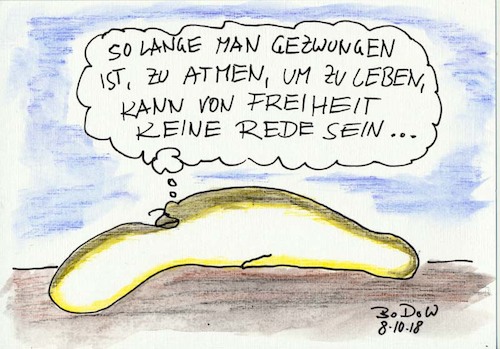 SO LANGE MAN GEZWUNGEN
IST, ZU ATMEN, UM ZU LEBEN,
KANN VON FREIHEIT
KEINE REDE SEIN...
BoDoW
8-10-18